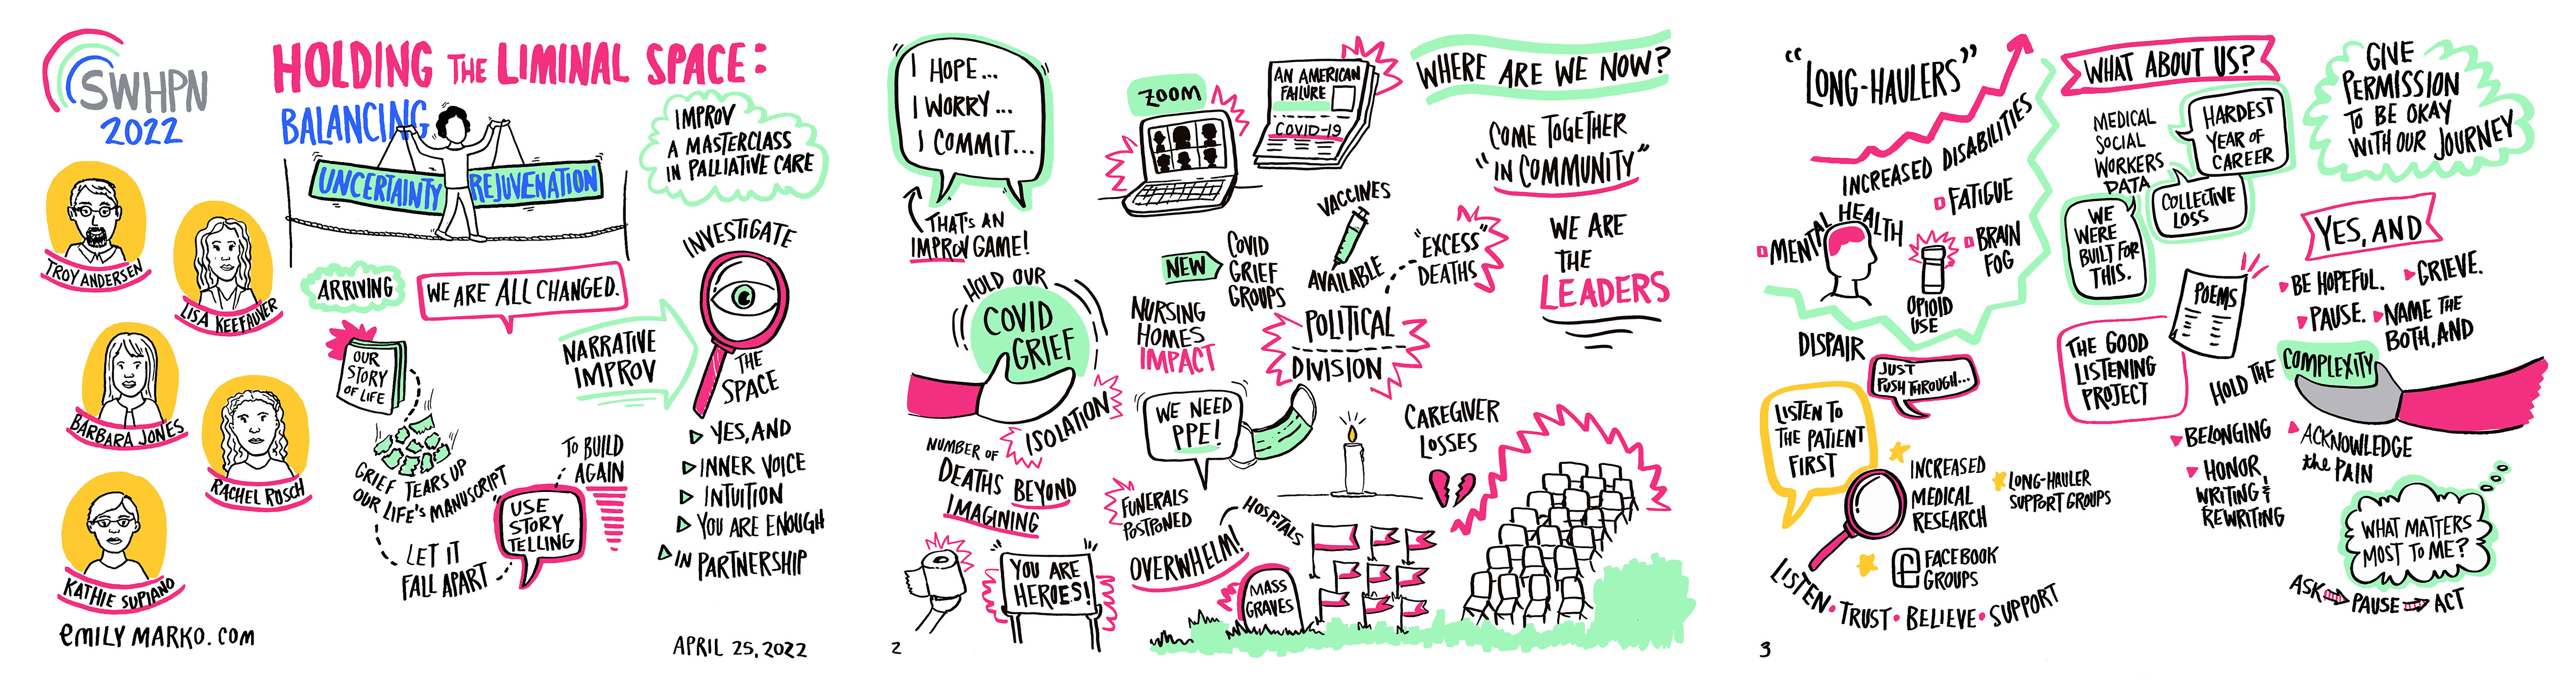 SWHPN
2022
HOLDING THE LIMINAL SPACE:
BALANCING
UNCERTAINTY
REJUVENATION
IMPROV
A MASTERCLASS
IN PALLIATIVE CARE
TROY ANDERSEN
LISA KEEFAUVER
BARBARA JONES
RACHEL ROSCH
KATHIE SUPIANO
EMILY MARKO.COM
ARRIVING
WE ARE ALL CHANGED.
OUR
STORY
OF LIFE
GRIEF TEARS UP
OUR LIFE'S MANUSCRIPT
LET IT
FALL APART
USE
STORY
TELLING
TO BUILD
AGAIN
NARRATIVE
IMPROV
INVESTIGATE
THE
SPACE
YES, AND
INNER VOICE
INTUITION
YOU ARE ENOUGH
IN PARTNERSHIP
APRIL 25, 2022
I HOPE...
I WORRY...
I COMMIT...
THAT'S AN
IMPROV GAME!
ZOOM
AN AMERICAN
FAILURE
COVID-19
WHERE ARE WE NOW?
COME TOGETHER
"IN COMMUNITY"
WE ARE
THE
LEADERS
HOLD OUR
COVID
GRIEF
NEW
COVID
GRIEF
GROUPS
VACCINES
AVAILABLE
"EXCESS"
DEATHS
NURSING
HOMES
IMPACT
POLITICAL
DIVISION
ISOLATION
WE NEED
PPE!
CAREGIVER
LOSSES
NUMBER OF
DEATHS BEYOND
IMAGINING
FUNERALS
POSTPONED
HOSPITALS
OVERWHELM!
YOU ARE
HEROES!
MASS
GRAVES
2
"LONG-HAULERS"
INCREASED DISABILITIES
FATIGUE
MENTAL HEALTH
BRAIN
FOG
OPIOID
USE
DISPAIR
JUST
PUSH THROUGH...
LISTEN TO
THE PATIENT
FIRST
INCREASED
MEDICAL
RESEARCH
LONG-HAULER
SUPPORT GROUPS
f FACEBOOK
GROUPS
LISTEN • TRUST • BELIEVE • SUPPORT
3
WHAT ABOUT US?
MEDICAL
SOCIAL
WORKERS
DATA
HARDEST
YEAR OF
CAREER
COLLECTIVE
LOSS
WE
WERE
BUILT FOR
THIS.
POEMS
THE GOOD
LISTENING
PROJECT
GIVE
PERMISSION
TO BE OKAY
WITH OUR JOURNEY
YES, AND
BE HOPEFUL.
GRIEVE.
PAUSE.
NAME THE
BOTH, AND
HOLD THE
COMPLEXITY
BELONGING
ACKNOWLEDGE
the PAIN
HONOR
WRITING &
REWRITING
WHAT MATTERS
MOST TO ME?
ASK PAUSE ACT